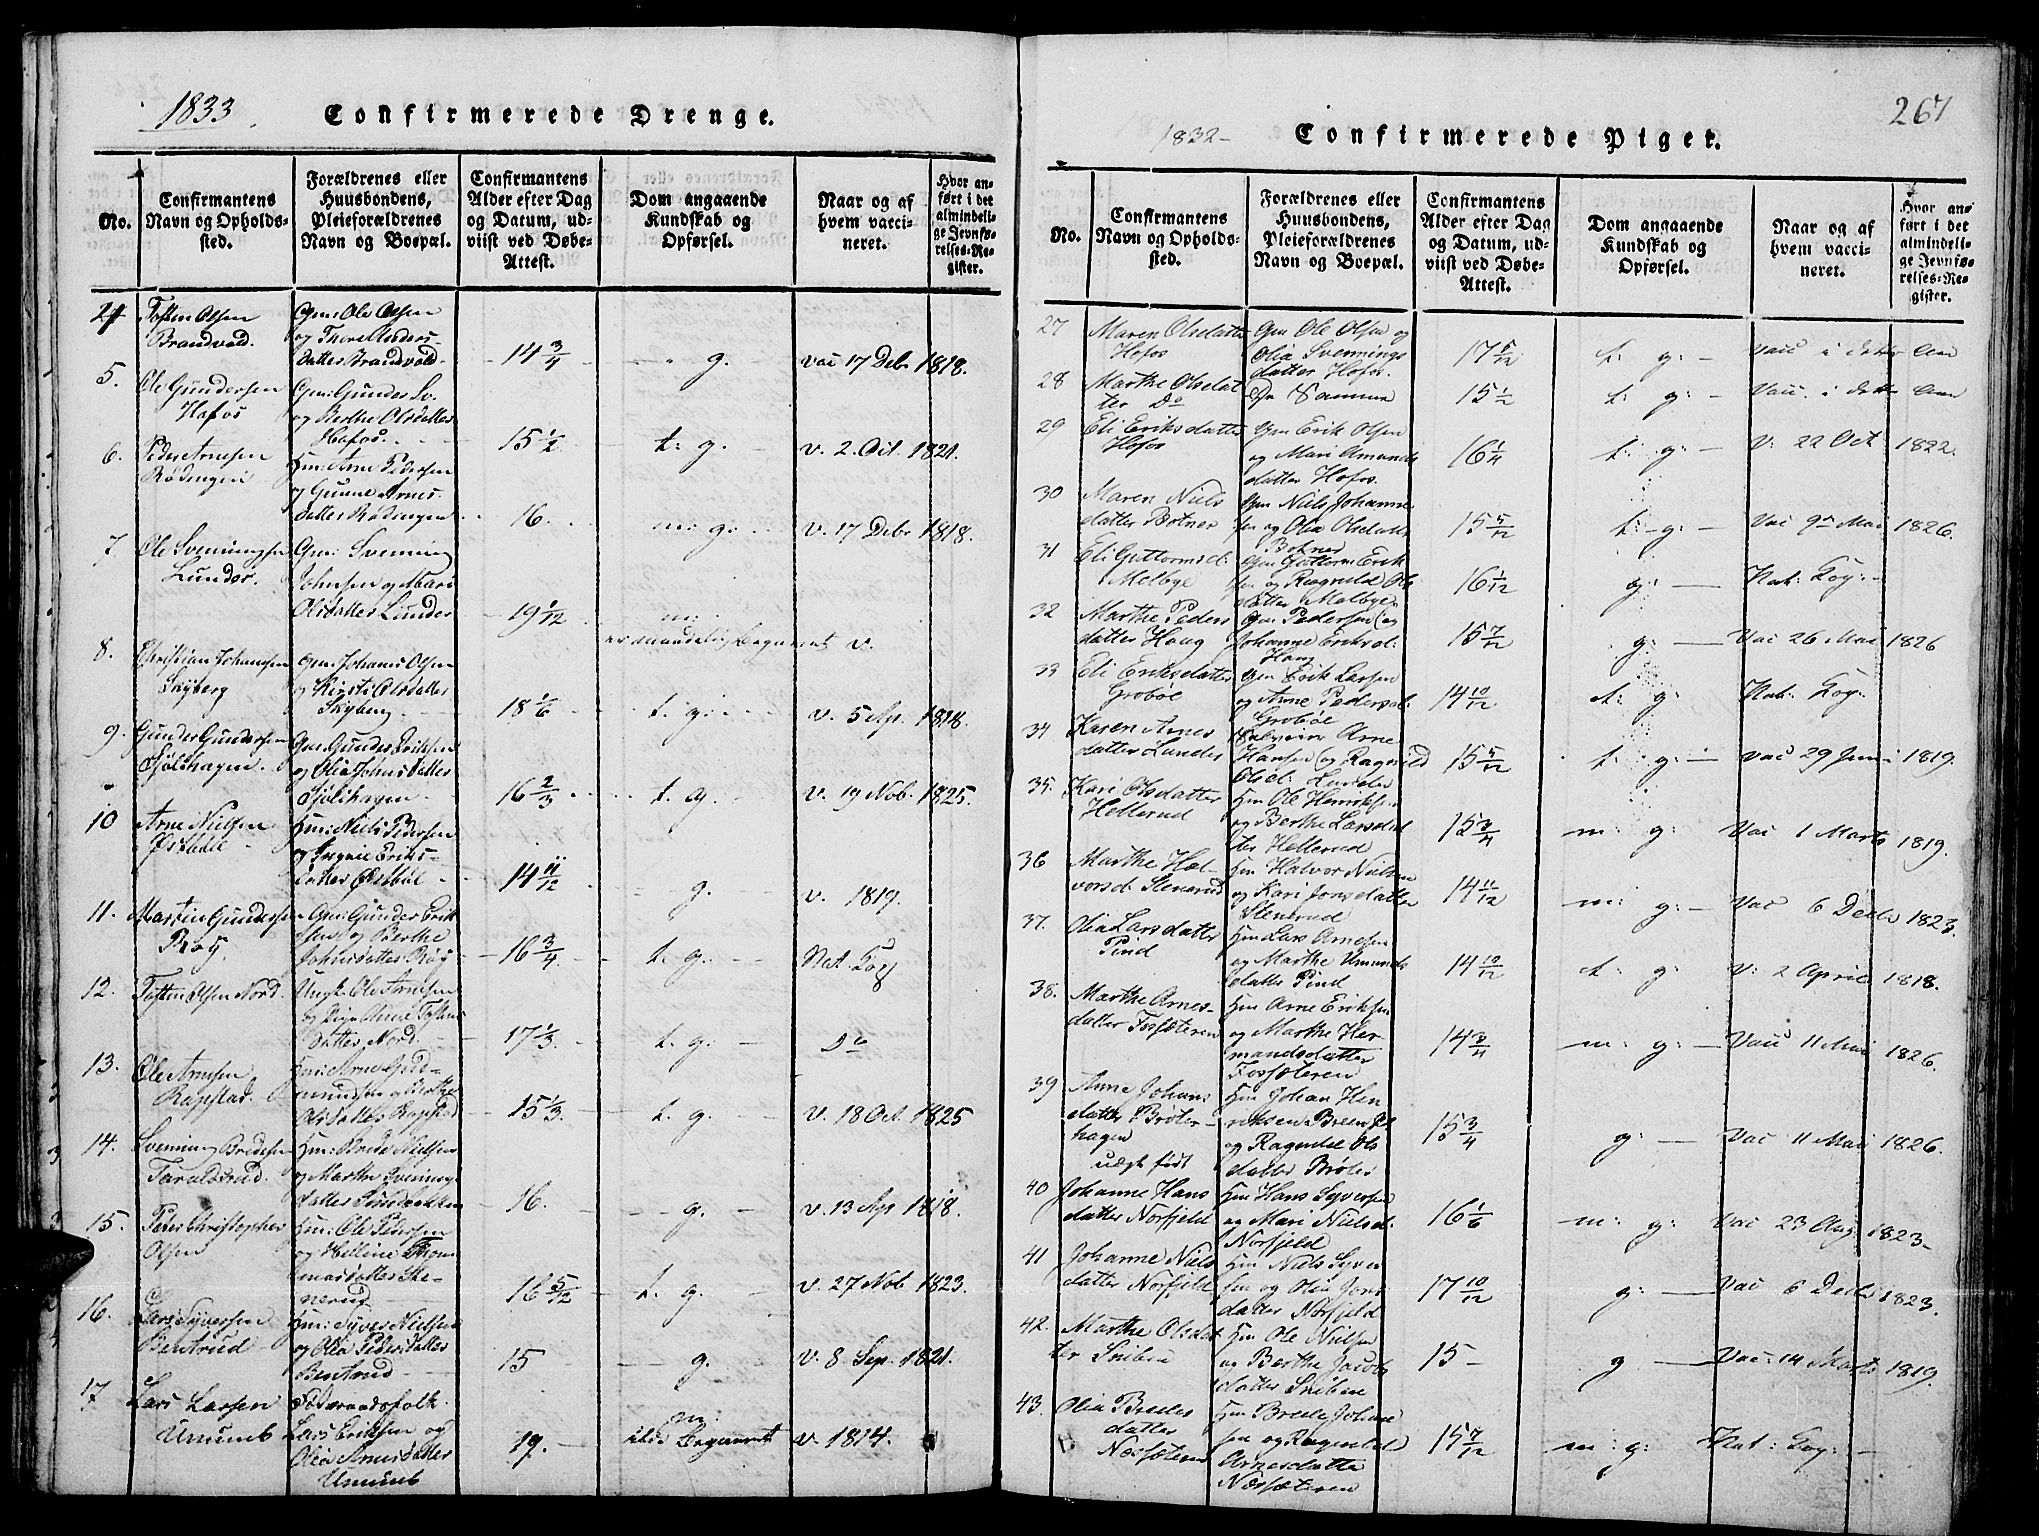 1833. Confirmerede Drenge.
No.
Confirmantens
Navn og Opholds-
sted.
Forældrenes eller
Huusbondens,
Pleieforældrenes
Navn og Boepæl.
Confirmantens
Alder efter Dag
og Datum, ud-
viist ved Døbe-
Attest.
Dom angaaende
Kundskab og
Opførsel.
Naar og af
hvem vacci-
neret.
Hvor an-
ført i det
almindeli-
ge Jevnfø-
relses-Re-
gister.
4 Tosten Olsen
Brandvold.
Gm: Ole Olsen
og Thore
datter Brandvold
14 3/4 g. vac 17 Debr 1818.
5. Ole Gundersen
Hofos
Gm: Gunder
og Berthe Olsdatter
Hofos.
15 1/2 t: g. v. 2. Oct. 1821.
6. Peder Arnesen
Rødningen
Hm: Arne Pedersen
og Gunne Arnes-
datter Rødningen
16. m: g: v. 17 Debr 1818.
7. Ole Svenningsen
Lunder.
Gm: Svenning
Johnsen og Mari
Olsdatter Lunder
19 1/12 m:
v.
8. Christian Johansen
Skyberg
Gm: Johans Olsen
og Kirsti Olsdatter
Skyberg
18 1/6 t. g: v. 5 Ap. 1818.
9. Gunder Gundersen
Sjølshagen.
Gm: Gunder Eriksen
og Olia Johnsdatter
Sjølshagen
16 2/3 t. g. v. 19 Nob. 1825.
10 Arne Nielsen
Hm: Niels Pedersen
og Eriks-
datter
14 11/12 g. v. 1819.
11. Martin Gundersen
Røy.
Gm: Gunder Erik
sen og Berthe
Johnsdatter Røy
16 3/4 t. g. Nat. Kop
12. Tosten Olsen Nord.
Ungk. Ole Arnesen
og Pige Anne Tostens
datter Nord.
17 1/3. t. g. Do
13. Ole Arnesen
Ropstad.
Hm: Arne Gud-
mundsen og Berthe
Olsdatter Ropstad
15 1/3. t. g. v. 18 Oct. 1825
14. Svenning Bredesen
Taraldsrud.
Hm: Brede Nielsen
og Marthe Svennings
datter
16. g. v. 13 Ap. 1818.
15. Peder Christopher
Olsen
Hm: Ole Pedersen
og Helline Thom-
masdatter Ste-
nerud
16 5/12 t. g. v. 27 Nob 1823.
16. Lars Syversen
Bentrud
Hm: Syver Nielsen
og Olia Pedersdatter
Bentrud
15 g. v. 8 Sep. 1821.
17 Lars Larsen
Ununeb
Føderaadsfolk
Lars Eriksen og
Olia Arnesdatter
Ununeb
19. m. v. 1814.
1832- Confirmerede Piger. 267
No.
Confirmantens
Navn og Opholds-
sted.
Forældrenes eller
Huusbondens,
Pleieforældrenes
Navn og Boepæl.
Confirmantens
Alder efter Dag
og Datum, ud-
viist ved Døbe-
Attest.
Dom angaaende
Kundskab og
Opførsel.
Naar og af
hvem vacci-
neret.
Hvor an-
ført i det
almindeli-
ge Jevnfø-
relses-Re-
gister.
27 Maren Olsdatter
Hofos
Gm Ole Olsen og
Olia Svennings
datter Hofos.
17 5/12 t: g: Vacc i dette Aar
28 Marthe Olsdat
ter Do
De Samme
15 1/2 t: g: Vacc. i dette Aar
29 Eli Eriksdatter
Hofos
Gm Erik Olsen
og Mari Amunds
datter Hofos.
16 1/4 t: g: V: 22 Oct 1822.
30 Maren Niels
datter Botner
Gm Niels Johanne
sen og Olia Olsdatter
Botner
15 5/12 t: g: Vac 9de Mai 1826.
31 Eli Guttormsd:
Melbye
Gm Guttorm Erik
sen og Ragnild Ols
datter Melbye.
16 1/12 g: Nat: Kop:
32 Marthe Peders
datter Haug
Gm Pedersen og
Johanne Eriksd:
Haug
15 7/12 g: Vac 26 Mai 1826
33 Eli Eriksdatter
Grobøl
Gm Erik Larsen
og Arne Pedersd:
Grobøl
14 10/12 t: g: Nat: Kop:
34 Karen Arnes
datter Lunder
Arne
Hansen og Ragnild
Olsd: Lunder
15 5/12 t. g: Vac 29 Juni 1819.
35. Kari Olsdatter
Hellerud
Hm Ole Henriksen
og Berthe Larsdat
ter Hellerud
15 3/4 m: g: Vac 1 Marts 1819.
36 Marthe Hal-
vorsd: Stenerud
Hm Halvor Nielsen
og Kari Jonsdatter
Stenerud
14 11/12 m: g: Vac 6 Decbr 1823.
37. Olia Larsdatter
Pind
Hm Lars Arnesen
og Marthe Amunds
datter Pind
14 10/12 t: g: V: 2 April 1818.
38. Marthe Arnes-
datter Fossæteren
Hm Arne Eriksen
og Marthe Her-
mandsdatter
Fossæteren
14 3/4 m: g: Vacc 11 Mai 1826.
39 Anne Johans
datter Brøter-
hagen
uægt født
Hm Johan Hen
riksen
og Ragnild Ols
datter Brøter
15 3/4 g: Vac 11 Mai 1826.
40 Johanne Hans
datter Norfjeld
Hm Hans Syversen
og Mari Nielsd:
Norfjeld
16 1/6 m: g: Vac 23 Aug 1823-
41 Johanne Niels
datter Norfjeld
Hm Niels Syver
sen og Olia Jons
datter Norfjeld
17 10/12 g: Vac 6 Decbr 1823.
42. Marthe Olsdat
ter Sniben
Hm Ole Nielsen
og Berthe Jacobs
datter Sniben
15 g Vac: 14 Marts 1819.
43. Olia Bredes
datter
Næssæteren
Hm Brede Johane
sen og Ragnild
Arnesdatter
Næssæteren
15 7/12 m: g: Nat: Kop: